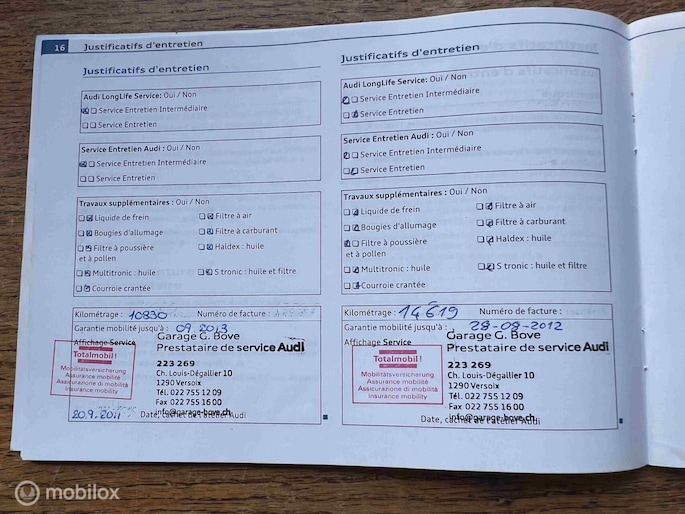 16 Justificatifs d'entretien
Justificatifs d'entretien
Audi LongLife Service: Oui / Non
Service Entretien Intermédiaire
Service Entretien
Service Entretien Audi : Oui / Non
Service Entretien Intermédiaire
Service Entretien
Travaux supplémentaires : Oui / Non
Liquide de frein
Filtre à air
Bougies d'allumage
Filtre à carburant
Filtre à poussière
et à pollen
Haldex : huile
Multitronic : huile
S tronic : huile et filtre
Courroie crantée
Kilométrage : 10830 Numéro de facture :
Garantie mobilité jusqu'à : 09.2013
Affichage Service
Garage G. Bove
Prestataire de service Audi
Totalmobil!
Mobilitätsversicherung
Assurance mobilité
Assicurazione di mobilità
Insurance mobility
223 269
Ch. Louis-Dégallier 10
1290 Versoix
Tél. 022 755 12 09
Fax 022 755 16 00
info@garage-bove.ch
20.9.2011
Date, cachet de l'atelier Audi
Justificatifs d'entretien
Audi LongLife Service: Oui / Non
Service Entretien Intermédiaire
Service Entretien
Service Entretien Audi : Oui / Non
Service Entretien Intermédiaire
Service Entretien
Travaux supplémentaires : Oui / Non
Liquide de frein
Filtre à air
Bougies d'allumage
Filtre à carburant
Filtre à poussière
et à pollen
Haldex : huile
Multitronic : huile
S tronic : huile et filtre
Courroie crantée
Kilométrage : 14619 Numéro de facture :
Garantie mobilité jusqu'à : 28-08-2012
Affichage Service
Garage G. Bove
Prestataire de service Audi
Totalmobil!
Mobilitätsversicherung
Assurance mobilité
Assicurazione di mobilità
Insurance mobility
223 269
Ch. Louis-Dégallier 10
1290 Versoix
Tél. 022 755 12 09
Fax 022 755 16 00
info@garage-bove.ch
Date, cachet de l'atelier Audi
mobilox